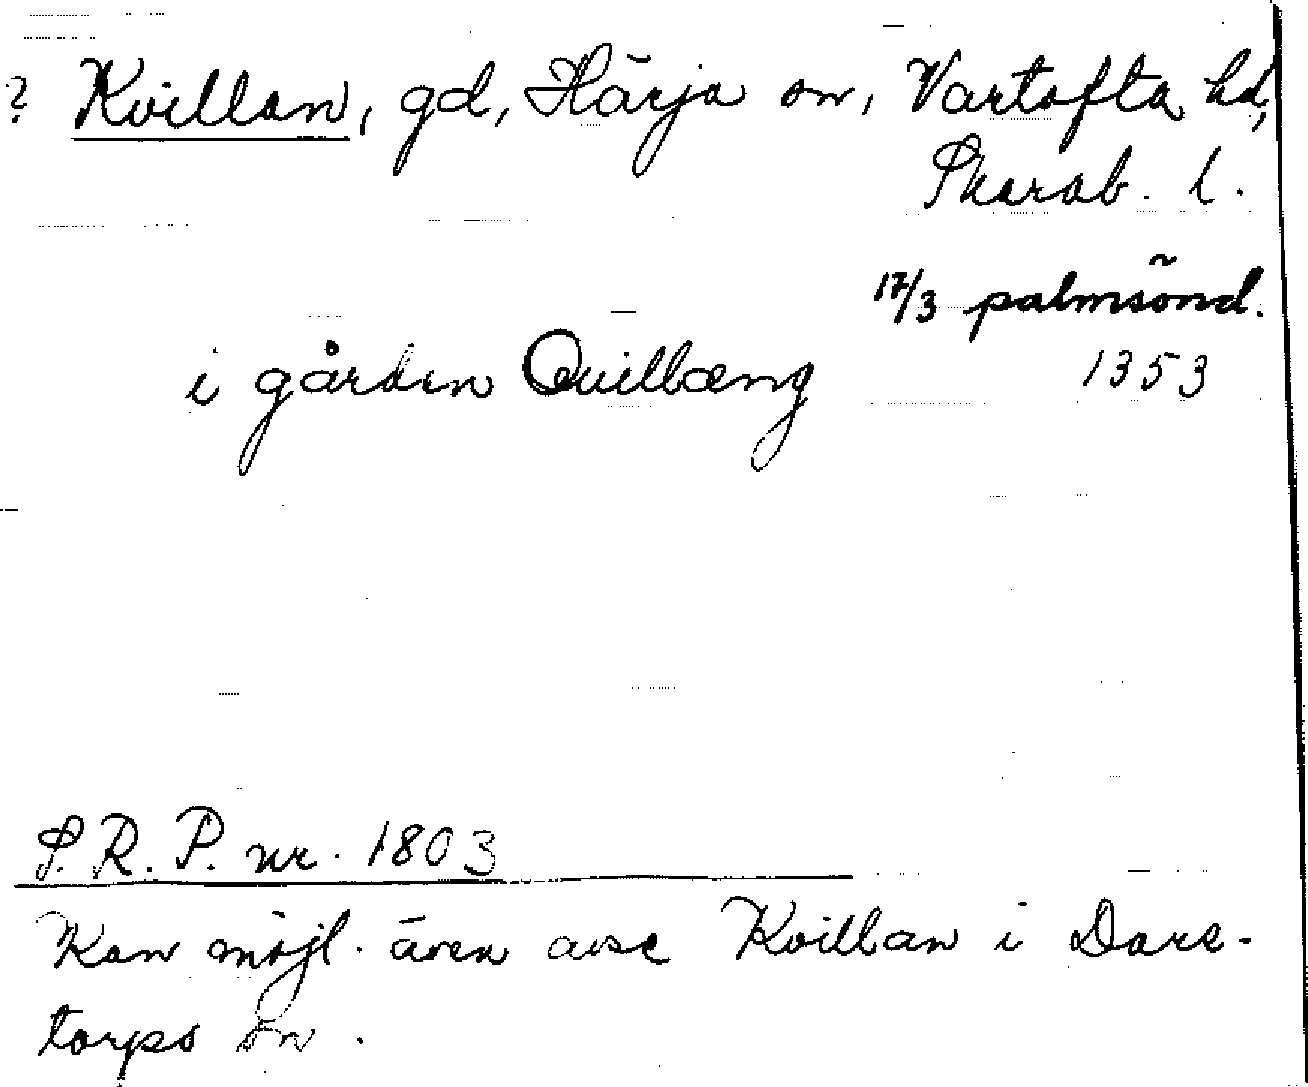 ? Kvillan, gd, Härja sn, Vartofta hd,
Skarab. l.
17/3 palmsönd.
1353
i gården Quillæng
S.R.P. nr. 1803
Kan möjl. även avse Kvillan i Dare-
torps sn.